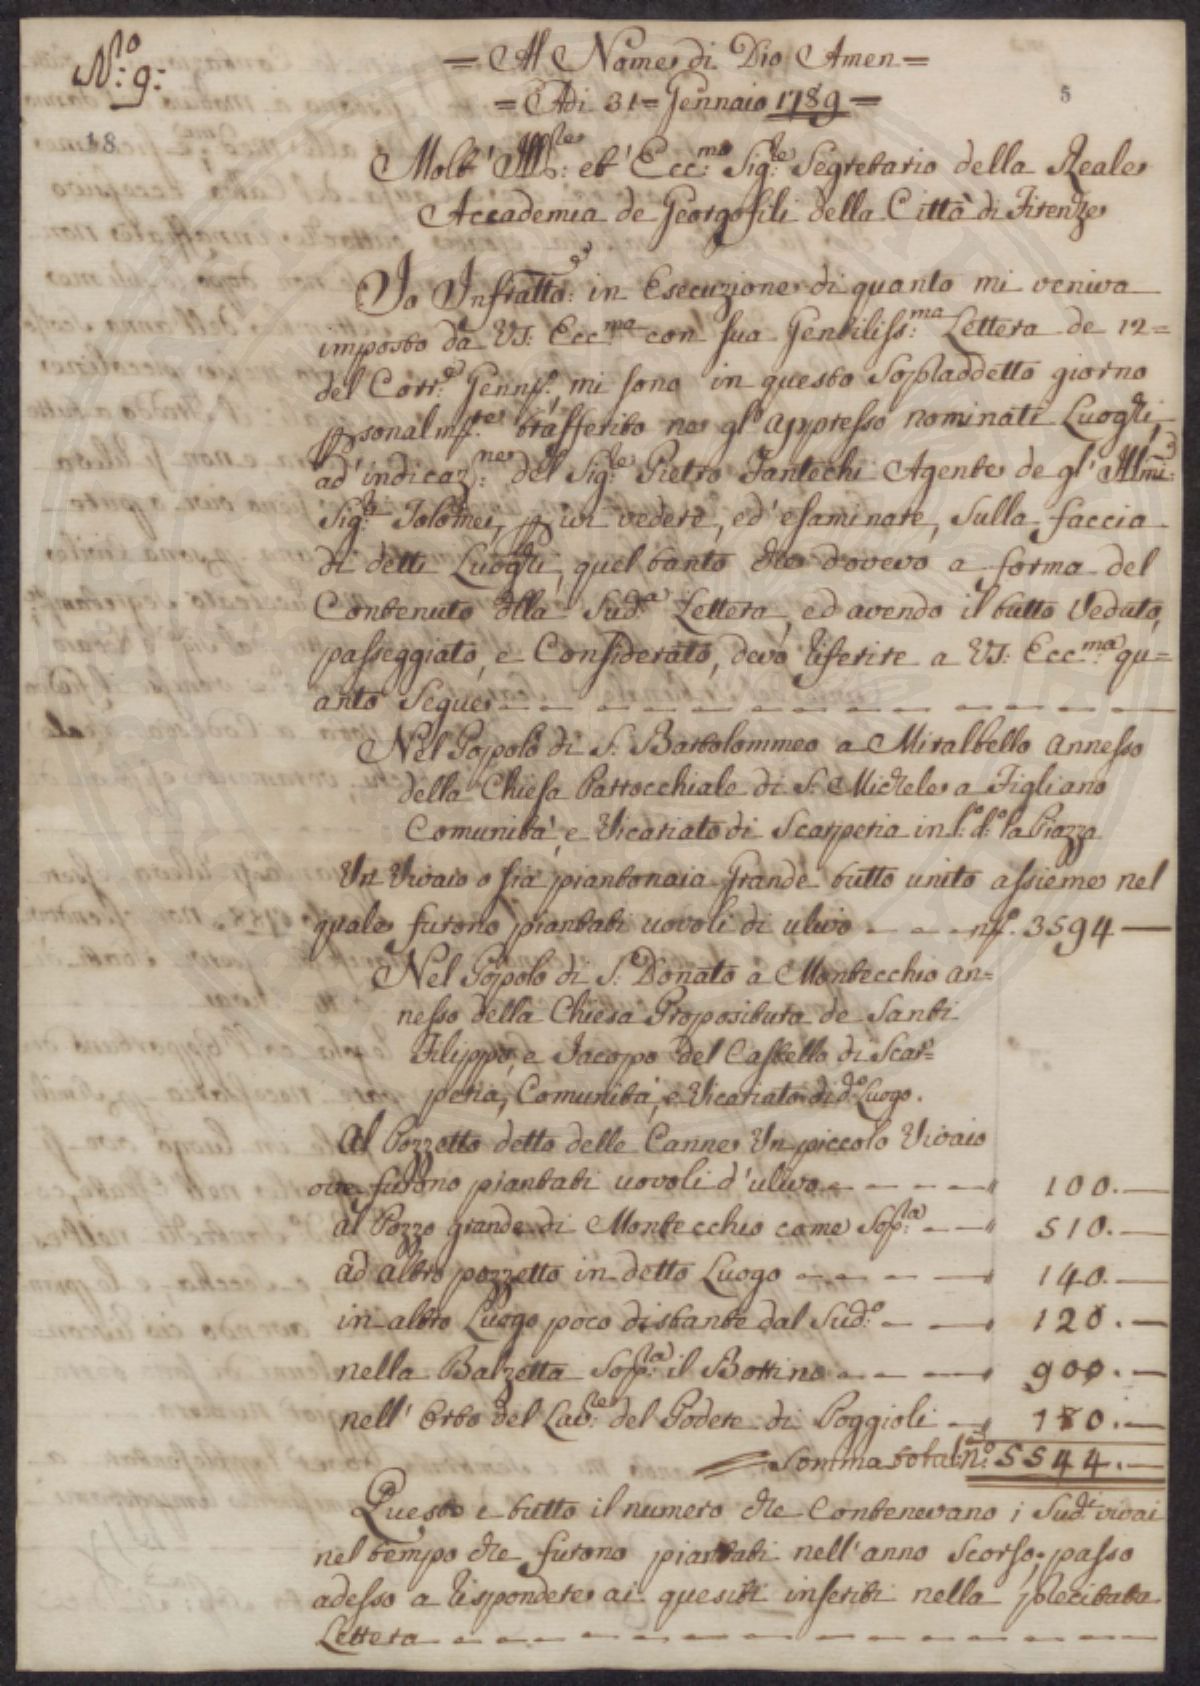 N.o 9:
= Al Nome di Dio Amen =
= Adi 31 = Gennaio 1789 =
5
18.
Molt' Ill:re et' Ecc:mo Sig:re Segretario della Reale
Accademia de Georgofili della Città di Firenze
Io Infratto: in Esecuzione di quanto mi veniva
imposto da VS: Ecc:ma con sua Gentiliss:ma Lettera de 12=
del Corr:e Genn:o, mi sono in questo Sopraddetto giorno
psonalm:te trasferito ne gl'appresso nominati Luoghi,
ad' indicaz:ne del Sig:re Pietro Fantechi Agente de gl' Illmi:
Sig:ri Tolomei, p ivi vedere, ed' esaminare, sulla faccia
di detti Luoghi, quel tanto che dovevo a forma del
Contenuto dlla Sud:a Lettera, ed avendo il tutto Veduto,
passeggiato, e Considerato, devo riferire a VS: Ecc:ma qu=
anto Segue
Nel Popolo di S: Bartolommeo a Miralbello annesso
della Chiesa Parrocchiale di S: Michele a Figliano
Comunità, e Vicariato di Scarperia in l:o d:o la Piazza
Un Vivaio o sia piantonaia Grande tutto unito assieme nel
quale furono piantati uovoli di ulivo - - - n:o 3594 -
Nel Popolo di S: Donato a Montecchio an=
nesso della Chiesa Propositura de Santi
Filippo, e Jacopo del Castello di Scar=
peria, Comunità, e Vicariato di d:o Luogo.
Al Pozzetto detto delle Canne Un piccolo Vivaio
ove furono piantati uovoli d'ulivo - - - - " 100. -
al Pozzo grande di Montecchio come Sop:a - - " 510. -
ad altro pozzetto in detto Luogo - - - - " 140. -
in altro Luogo poco distante dal Sud:o - - " 120. -
nella Balzetta Sop:a il Bottino - - - " 900. -
nell' Orto del Lav:re del Podere di Poggioli - " 180. -
Somma total: n:o 5544. -
Questo è tutto il numero che Contenevano i Sud:i vivai
nel tempo che furono piantati nell' anno Scorso; passo
adesso a rispondere ai quesiti inseriti nella precitata
Lettera